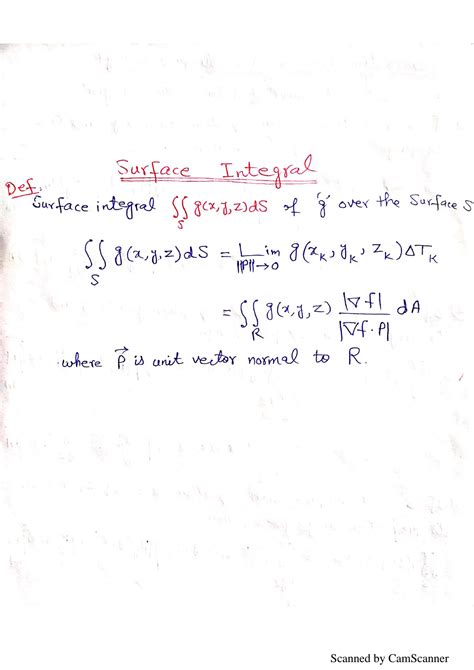 Surface Integral
Def.
Surface integral ∬_S g(x,y,z)dS of 'g' over the Surface S
∬_S g(x,y,z)dS = Lim_{||P||→0} g(x_k, y_k, z_k)ΔT_k
= ∬_R g(x,y,z) |∇f| / |∇f·P| dA
where P⃗ is unit vector normal to R.
Scanned by CamScanner